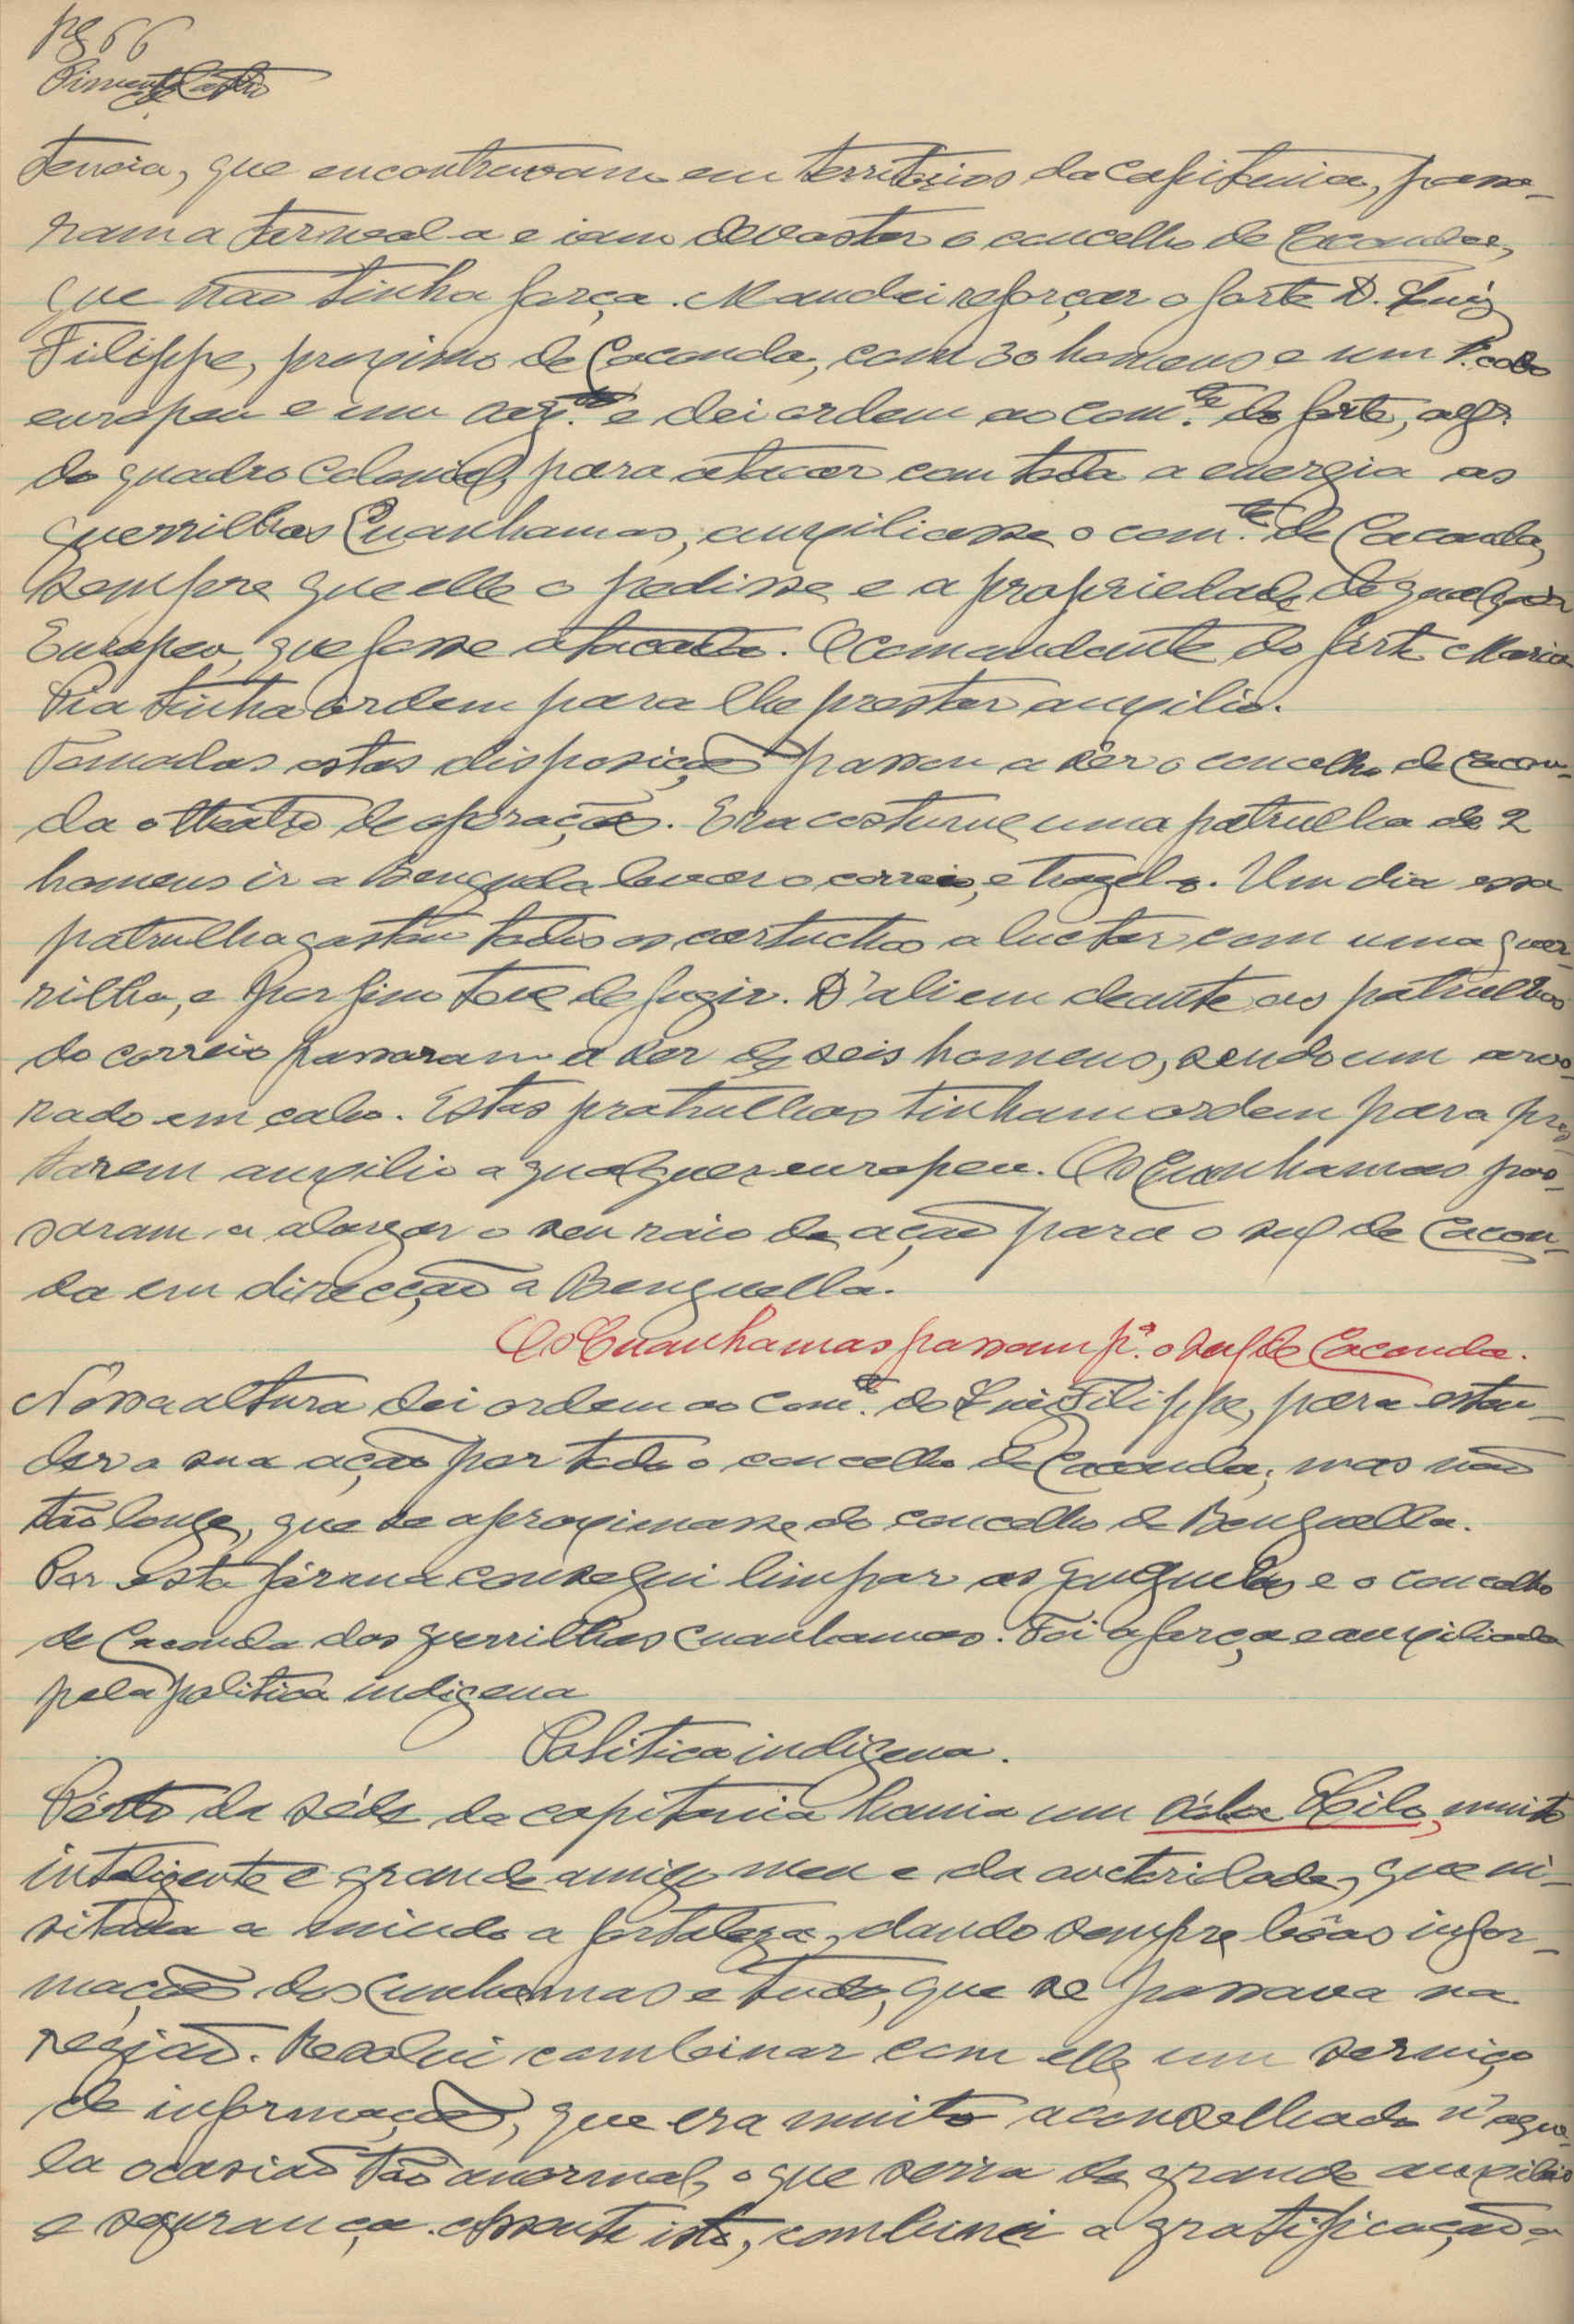 pg 66
Pimentel Castro
tencia, que encontravam em territorios da capitania, passa-
ram a torneal-a e iam devastar o concelho de Caconda,
que não tinha força. Mandei reforçar o forte D. Luiz
Filippe, proximo de Caconda, com 30 homens e um 1.º cabo
europeu e um sarg.to e dei ordem ao com.te do forte, alf.
do quadro colonial, para atacar com toda a energia as
guerrilhas Cuanhamas, auxiliasse o com.te de Caconda,
sempre que elle o pedisse e a propriedade de qualquer
Europeu, que fosse atacada. O comandante do forte Maria
Pia tinha ordem para lhe prestar auxilio.
Tomadas estas disposições passou a ser o concelho de Cacon-
da o theatro de operações. Era costume uma patrulha de 2
homens ir a Benguela levar o correio, e trazel-o. Um dia essa
patrulha gastou todos os cartuchos a luctar com uma guer-
rilha, e por fim teve de fugir. D'ali em deante as patrulhas
do correio passaram a ser de seis homens, sendo um arvo-
rado em cabo. Estas patrulhas tinham ordem para pres-
tarem auxilio a qualquer europeu. Os Cuanhamas pas-
saram a alargar o seu raio de ação para o sul de Cacon-
da em direcção a Benguella.
Os Cuanhamas passam p.ª o sul de Caconda.
Nessa altura dei ordem ao com.te do Luiz Filippe, para esten-
der a sua ação por todo o concelho de Caconda; mas não
tão longe, que se aproximasse do concelho de Benguella.
Por esta fórma consegui limpar os ganguelas e o concelho
de Caconda das guerrilhas cuanhamas. Foi a força e auxiliada
pela politica indigena
Politica indigena.
Pérto da séde da capitania havia um sóba Hilo, muito
inteligente e grande amigo meu e da auctoridade, que vi-
sitava a miudo a fortaleza, dando sempre bôas infor-
mações dos Cunhamas e tudo, que se passava na
região. Resolvi combinar com elle um serviço
de informações, que era muito aconselhado n'aque-
la ocasião tão anormal, o que seria de grande auxilio
e segurança. Assente isto, combinei a gratificação a